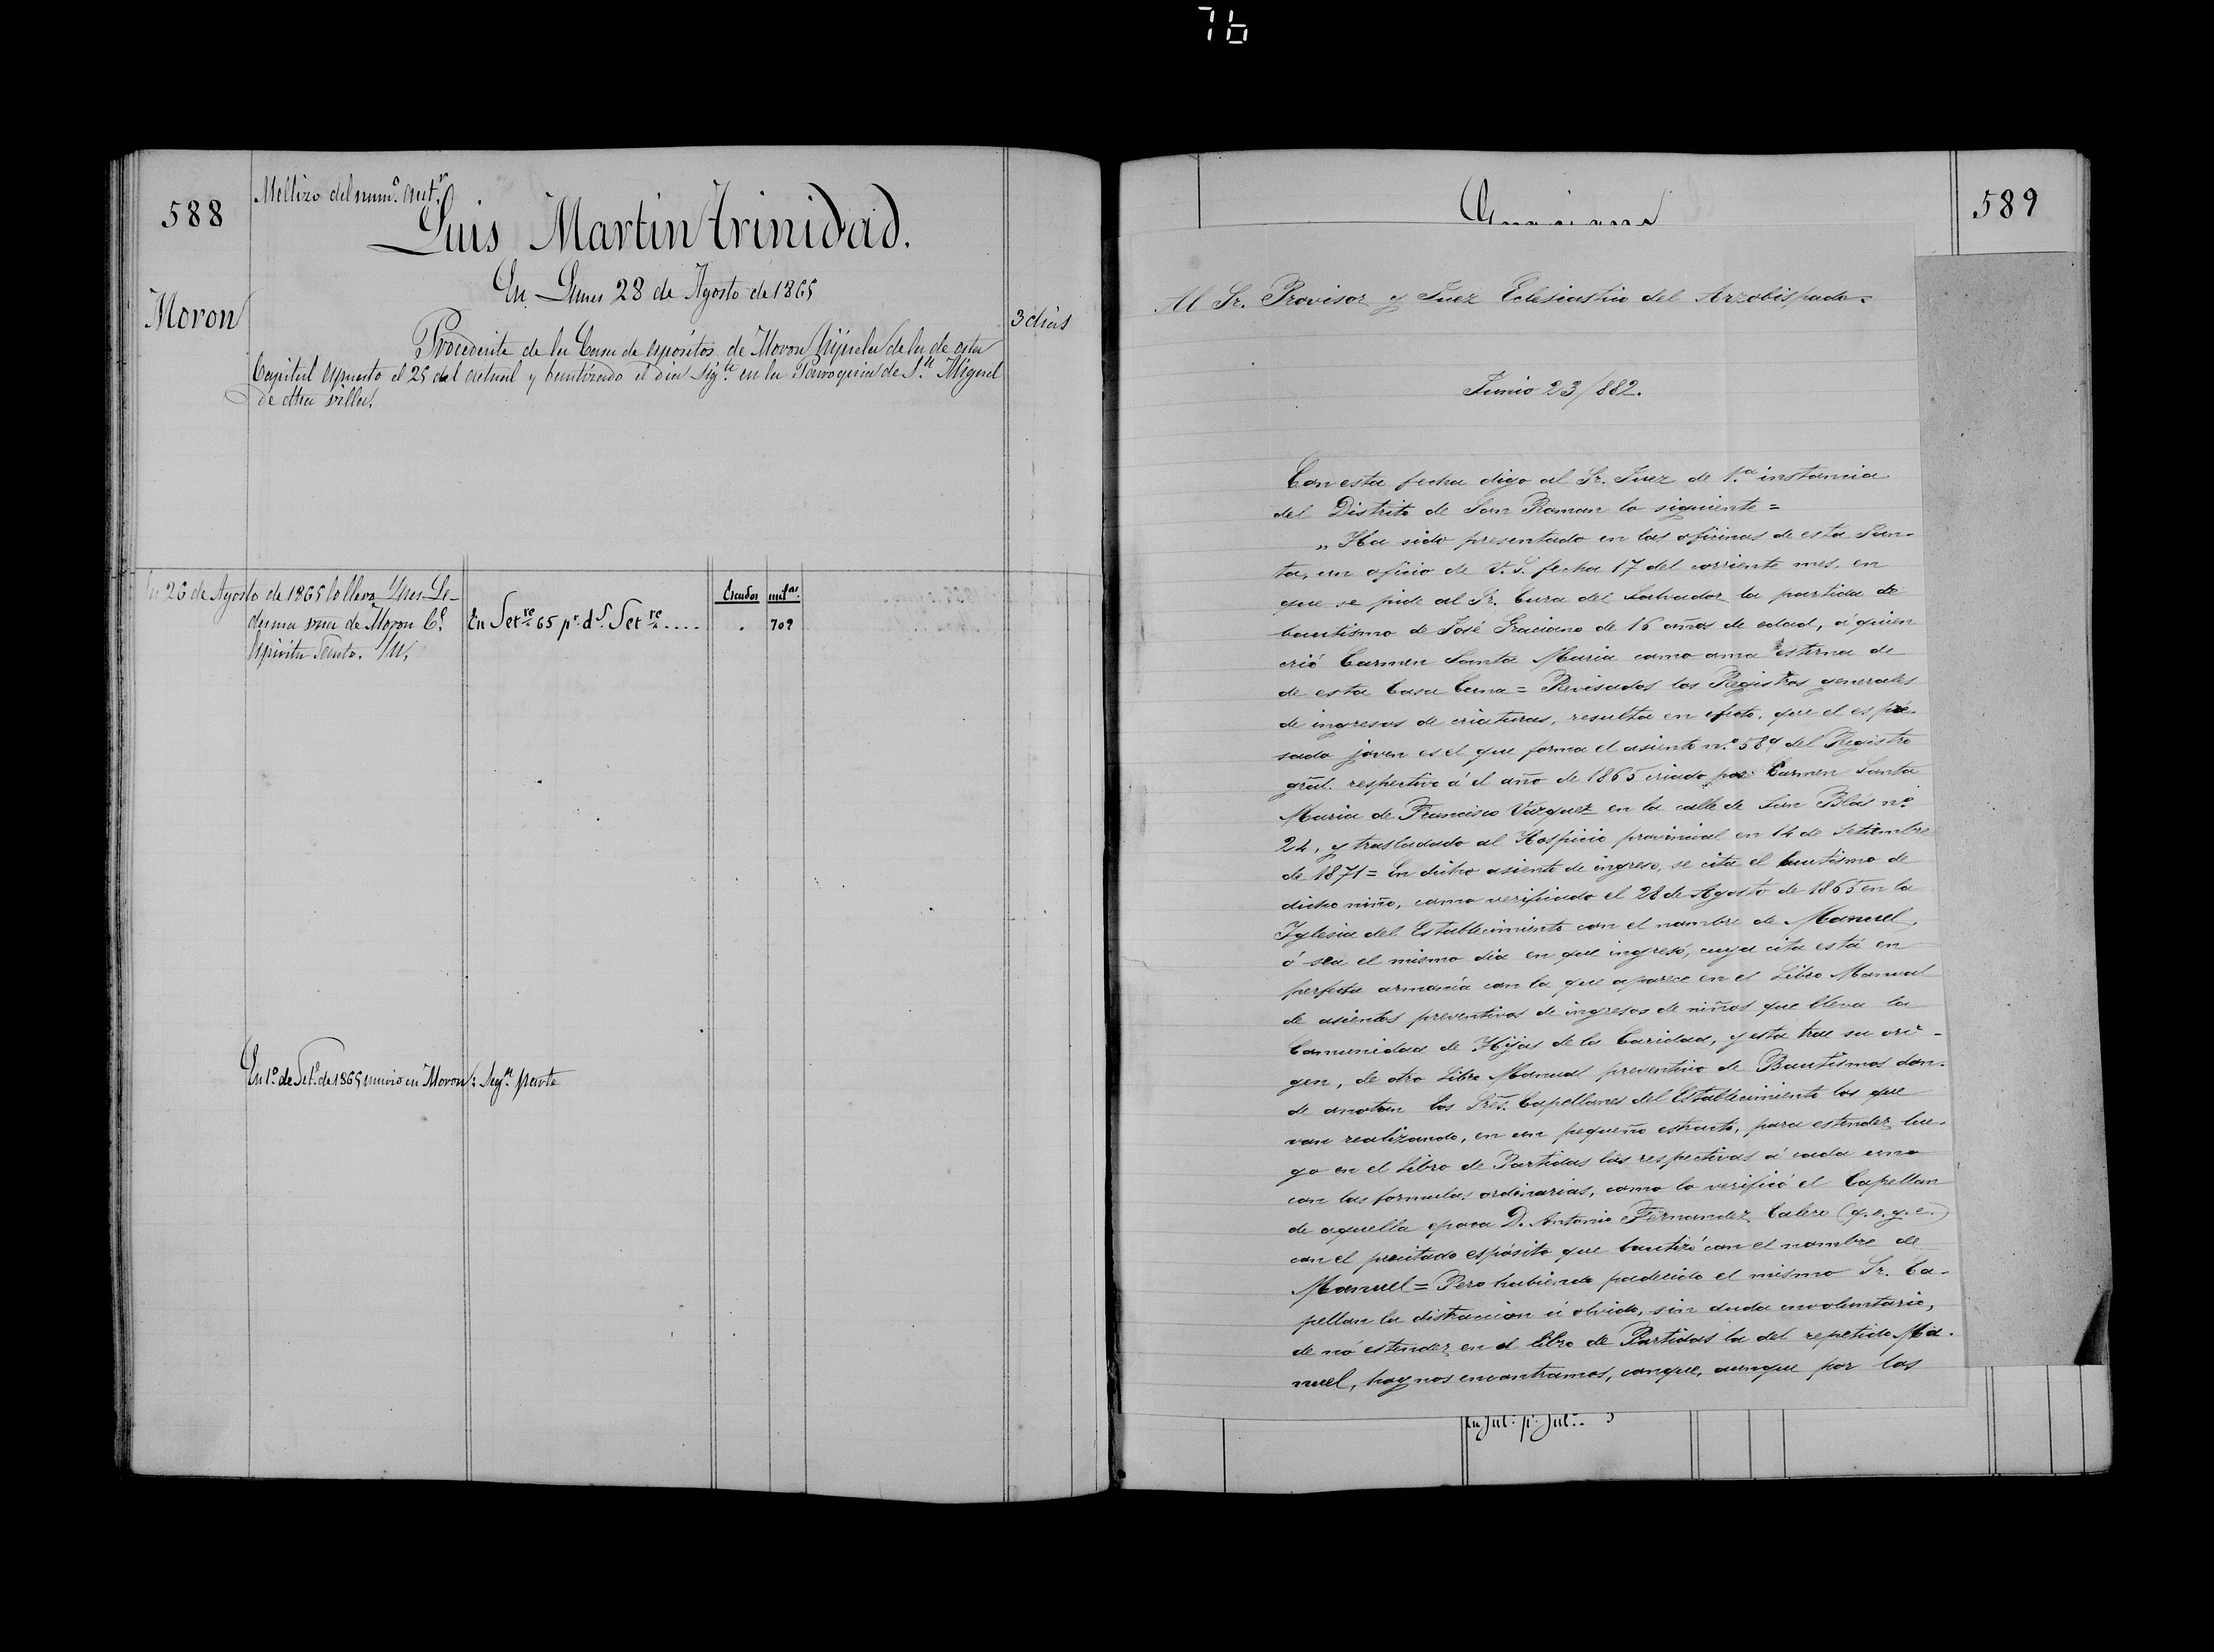 76
588
Mellizo del num.º ant.r
Luis Martin Trinidad.
En Lunes 28 de Agosto de 1865
Moron
3 dias
Procedente de la Casa de espósitos de Moron hijuela de la de esta
Capital espuesto el 25 del actual y bautizado el dia sig.te en la Parroquia de S.n Miguel
de dha villa.
En 26 de Agosto de 1865 lo lleva Ynes Le-
desma vna de Moron C.e
Espiritu Santo.
Escudos mil.as
En Set.re 65 p.r d.s Set.re .... . 709
En 1.º de Set.e de 1865 murio en Moron: Seg.n parte
589
Al Sr. Provisor y Juez Eclesiastico del Arzobispado.
Junio 23/882.
Con esta fecha digo al Sr. Juez de 1.ª instancia
del Distrito de San Roman lo siguiente =
„Ha sido presentado en las oficinas de esta Jun-
ta, un oficio de V.S. fecha 17 del corriente mes, en
que se pide al Sr. Cura del Salvador la partida de
bautismo de José Graciano de 16 años de edad, á quien
crió Carmen Santa Maria como ama esterna de
de esta Casa Cuna = Revisados los Registros generales
de ingresos de criaturas, resulta en efecto, que el espre-
sado joven es el que forma el asiento n.º 589 del Registro
gral. respectivo á el año de 1865 criado por Carmen Santa
Maria de Francisco Vazquez en la calle de San Blás nº
24, y trasladado al Hospicio provincial en 14 de Setiembre
de 1871 = En dicho asiento de ingreso, se cita el bautismo de
dicho niño, como verificado el 28 de Agosto de 1865 en la
Iglesia del Establecimiento con el nombre de Manuel,
ó sea el mismo dia en que ingresó, cuya cita está en
perfecta armonía con la que aparece en el Libro Manual
de asientos preventivos de ingresos de niños que lleva la
Comunidad de Hijas de la Caridad, y esta trae su orí-
gen, de otro Libro Manual preventivo de Bautismos don-
de anotan los Sres. Capellanes del Establecimiento los que
van realizando, en un pequeño estracto, para estender lue-
go en el Libro de Partidas las respectivas á cada uno
con las formulas ordinarias, como lo verificó el Capellan
de aquella epoca D. Antonio Fernandez Calero (q.e.g.e.)
con el precitado espósito que bautizó con el nombre de
Manuel = Pero habiendo padecido el mismo Sr. Ca-
pellan la distraccion ú olvido, sin duda involuntario,
de nó estender en el libro de Partidas la del repetido Ma-
nuel, hoy nos encontramos, conque, aunque por los
En Jul.º p.r Jul.º